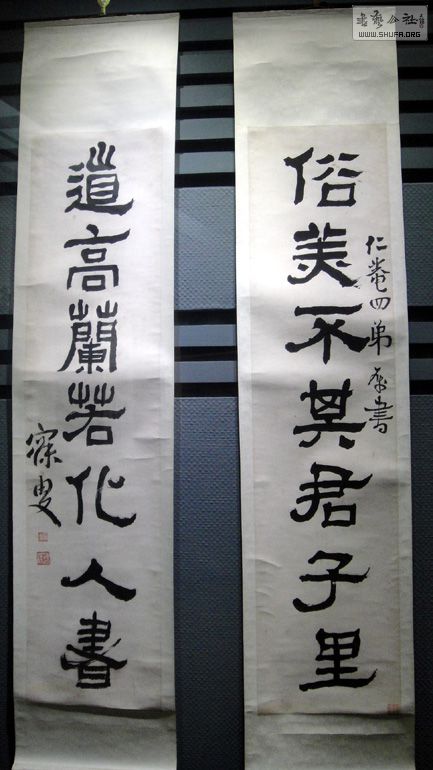 俗美不其君子里
仁菴四弟屬書
道高蘭若化人書
寐叟
書藝公社
WWW.SHUFA.ORG